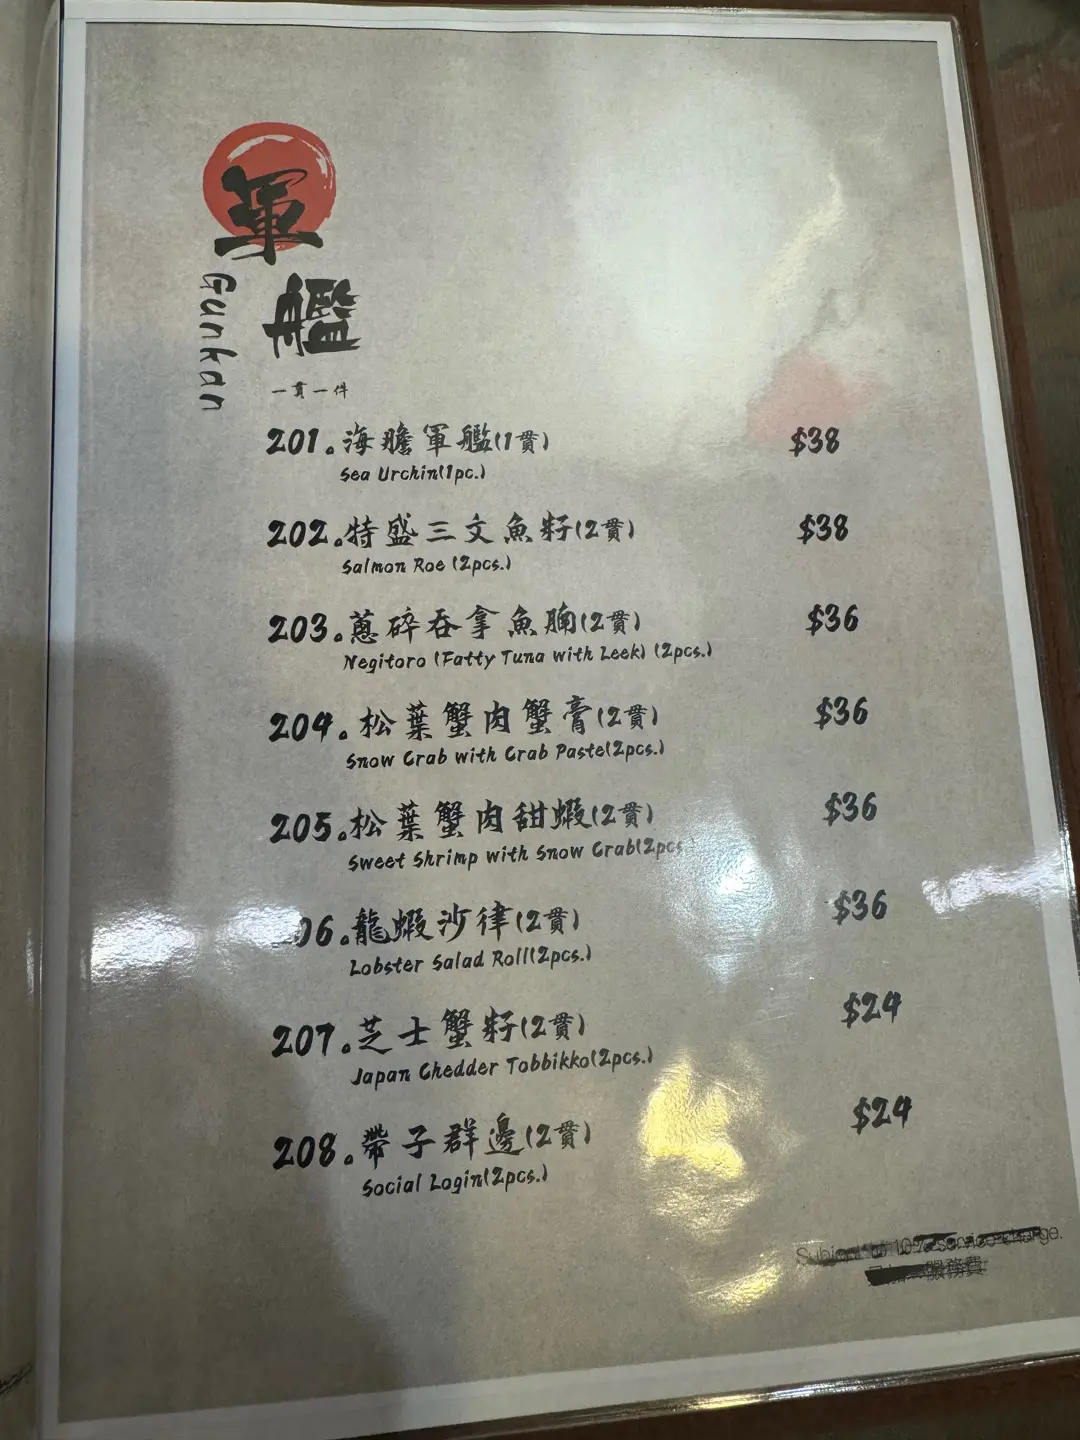 軍艦
Gunkan
一貫一件
201.海膽軍艦(1貫) $38
Sea Urchin(1pc.)
202.特盛三文魚籽(2貫) $38
Salmon Roe (2pcs.)
203.蔥碎吞拿魚腩(2貫) $36
Negitoro (Fatty Tuna with Leek) (2pcs.)
204.松葉蟹肉蟹膏(2貫) $36
Snow Crab with Crab Paste(2pcs.)
205.松葉蟹肉甜蝦(2貫) $36
Sweet Shrimp with Snow Crab(2pcs
06.龍蝦沙律(2貫) $36
Lobster Salad Roll(2pcs.)
207.芝士蟹籽(2貫) $24
Japan Chedder Tobbikko(2pcs.)
208.帶子群邊(2貫) $24
Social Login(2pcs.)
Subject to 10% service charge.
服務費